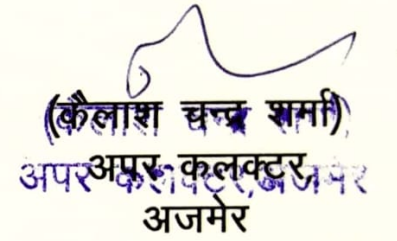 (कैलाश चन्द्र शर्मा)
अपर कलक्टर,
अपर कलक्टर,अजमेर
अजमेर